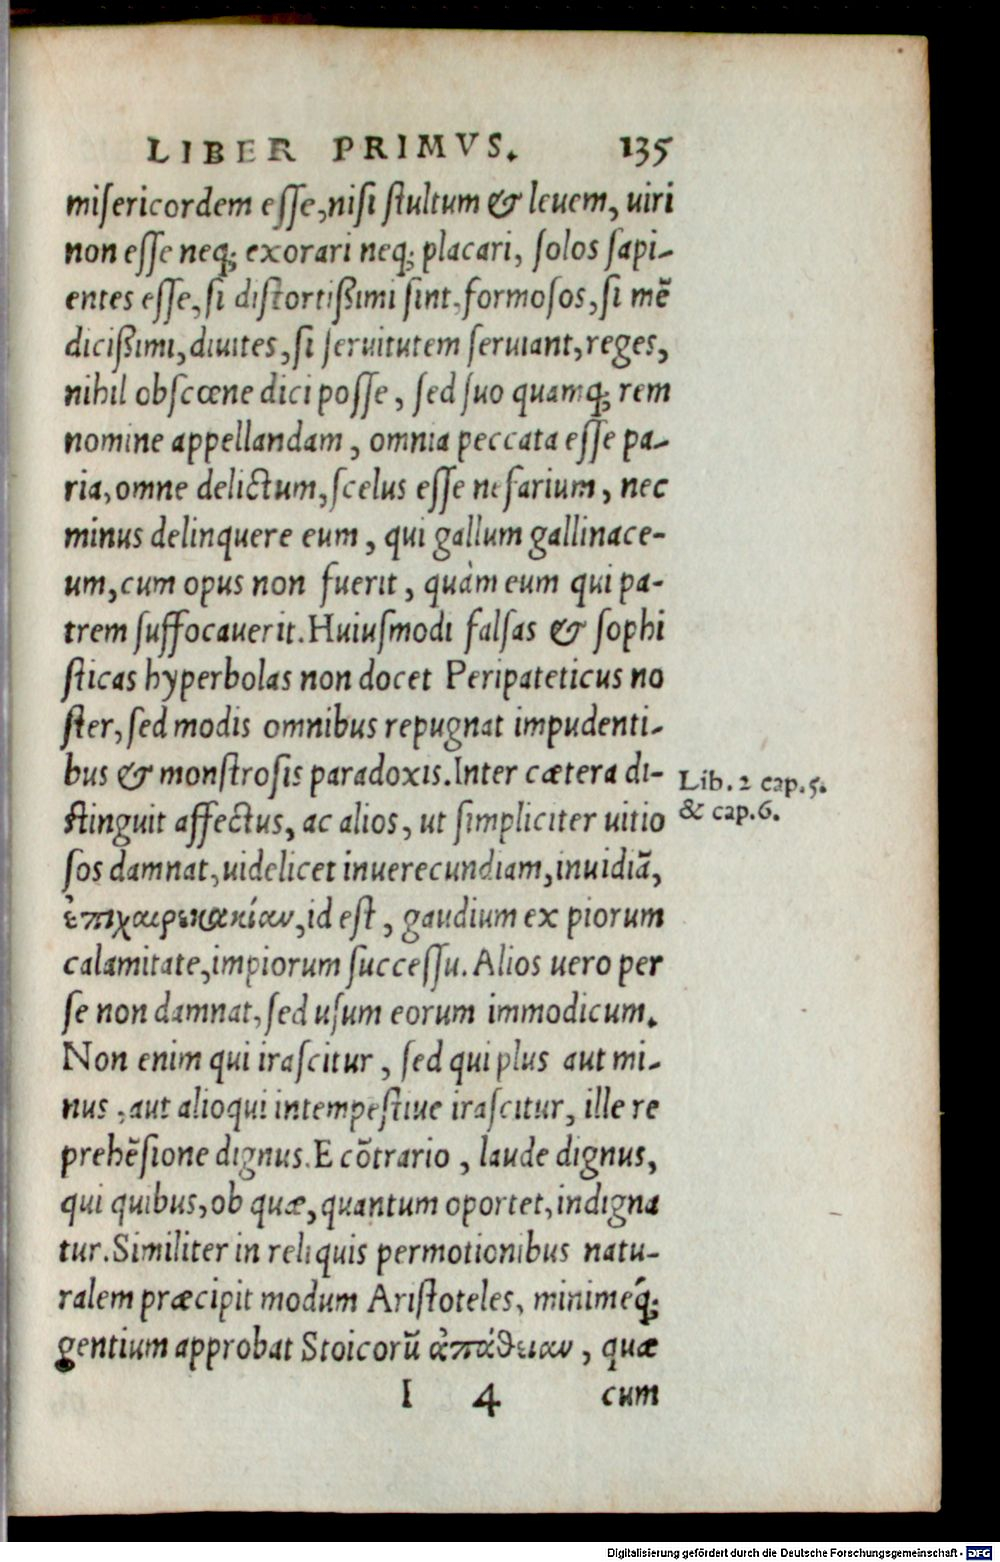 LIBER PRIMVS. 135
misericordem esse, nisi stultum & leuem, uiri
non esse neq; exorari neq; placari, solos sapi-
entes esse, si distortißimi sint, formosos, si mẽ
dicißimi, diuites, si seruitutem seruiant, reges,
nihil obscœne dici posse, sed suo quamq; rem
nomine appellandam, omnia peccata esse pa-
ria, omne delictum, scelus esse nefarium, nec
minus delinquere eum, qui gallum gallinace-
um, cum opus non fuerit, quàm eum qui pa-
trem suffocauerit. Huiusmodi falsas & sophi
sticas hyperbolas non docet Peripateticus no
ster, sed modis omnibus repugnat impudenti-
bus & monstrosis paradoxis. Inter cætera di-
Lib. 2 cap. 5.
& cap. 6.
stinguit affectus, ac alios, ut simpliciter uitio
sos damnat, uidelicet inuerecundiam, inuidiã,
ἐπιχαιρεκακίαν, id est, gaudium ex piorum
calamitate, impiorum successu. Alios uero per
se non damnat, sed usum eorum immodicum.
Non enim qui irascitur, sed qui plus aut mi-
nus, aut alioqui intempestiue irascitur, ille re
prehẽsione dignus. E cõtrario, laude dignus,
qui quibus, ob quæ, quantum oportet, indigna
tur. Similiter in reliquis permotionibus natu-
ralem præcipit modum Aristoteles, minimeq́;
gentium approbat Stoicorũ ἀπάθειαν, quæ
I 4 cum
Digitalisierung gefördert durch die Deutsche Forschungsgemeinschaft - DFG